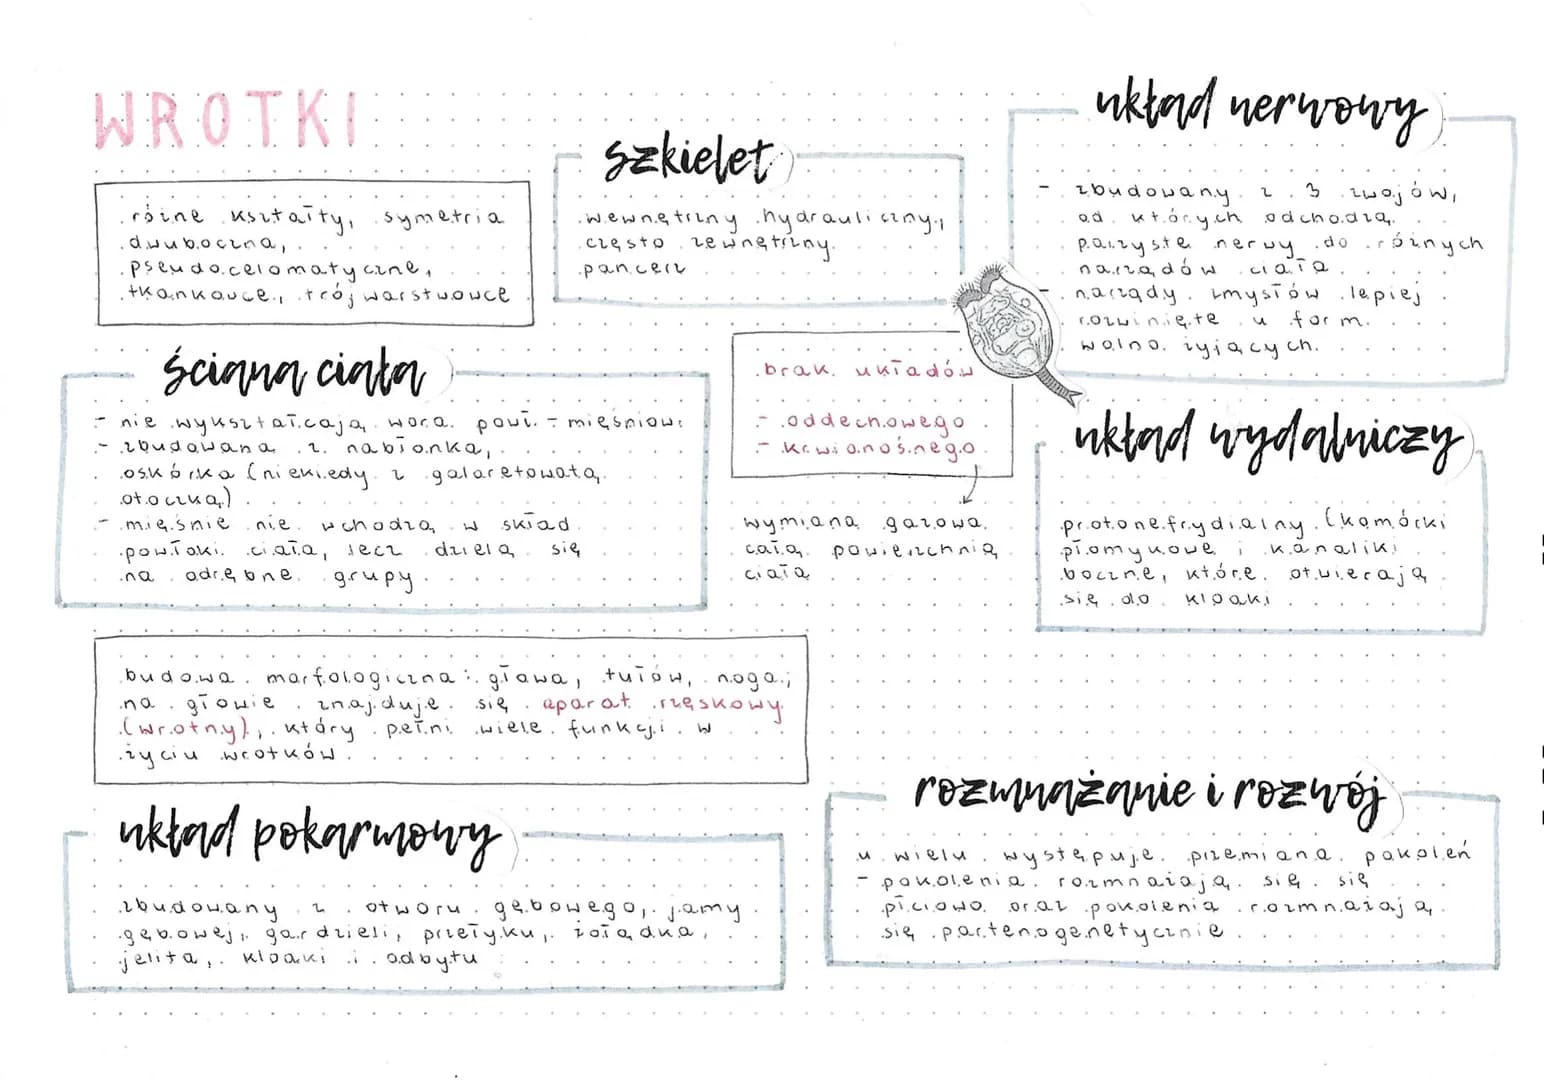 WROTKI
różne kształty, symetria
dwuboczna,
pseudocelomatyczne,
tkankowce, trójwarstwowce
szkielet
wewnętrzny hydrauliczny,
często zewnętrzny
pancerz
układ nerwowy
- zbudowany z 3 zwojów,
od których odchodzą
parzyste nerwy do różnych
narządów ciała
- narządy zmysłów lepiej
rozwinięte u form
wolno żyjących.
ściana ciała
- nie wykształcają wora powł.-mięśniow.
- zbudowana z nabłonka,
oskórka (niekiedy z galaretowatą
otoczką)
- mięśnie nie wchodzą w skład
powłoki ciała, lecz dzielą się
na odrębne grupy
brak układów
- oddechowego
- krwionośnego
wymiana gazowa
całą powierzchnią
ciała
układ wydalniczy
protonefrydialny (komórki
płomykowe i kanaliki
boczne, które otwierają
się do kloaki
budowa morfologiczna: głowa, tułów, noga;
na głowie znajduje się aparat rzęskowy
(wrotny), który pełni wiele funkcji w
życiu wrotków
układ pokarmowy
zbudowany z otworu gębowego, jamy
gębowej, gardzieli, przełyku, żołądka,
jelita, kloaki i odbytu
rozmnażanie i rozwój
u wielu występuje przemiana pokoleń
- pokolenia rozmnażają się się
płciowo oraz pokolenia rozmnażają
się partenogenetycznie